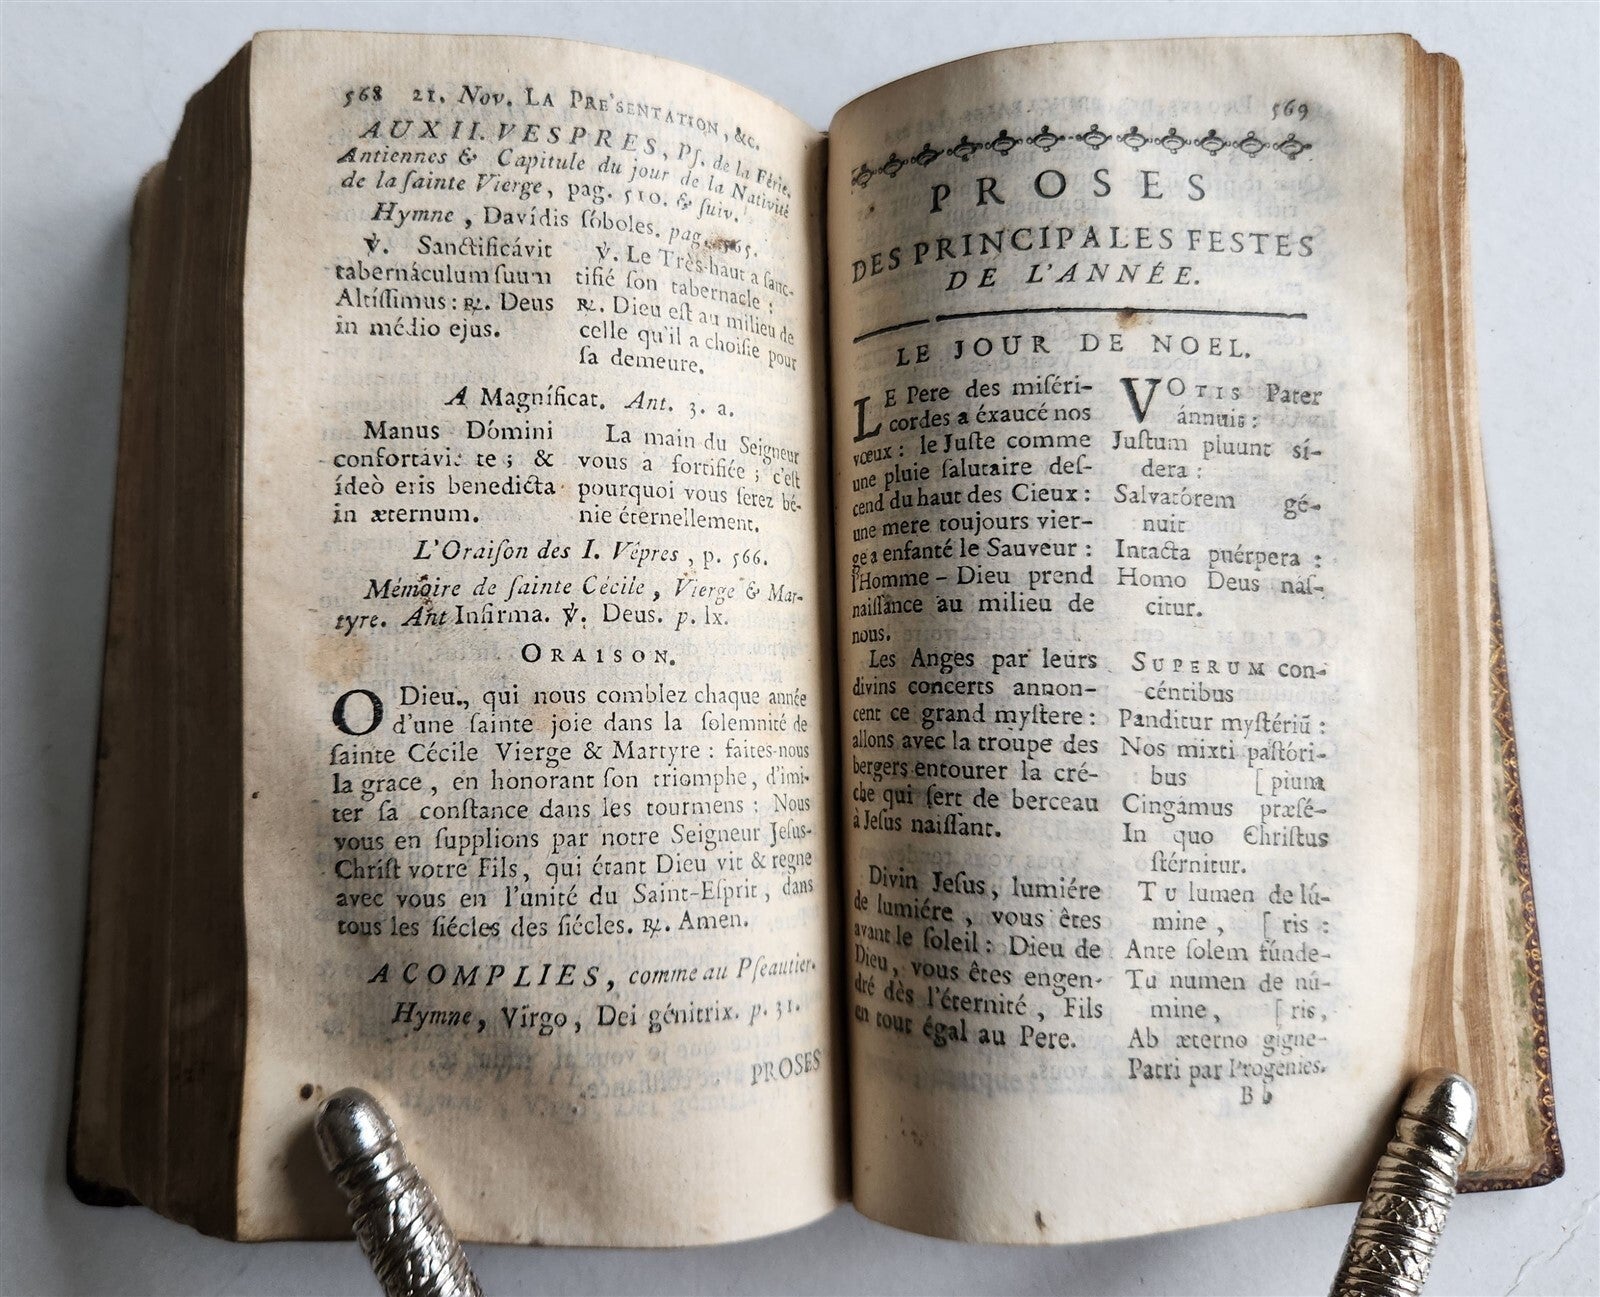 568 21. Nov. LA PRÉSENTATION, &c.
AUX II. VESPRES, Ps. de la Férie.
Antiennes & Capitule du jour de la Nativité
de la ſainte Vierge, pag. 510. & ſuiv.
Hymne, Davídis ſóboles. pag. 565.
℣. Sanctificávit
tabernáculum ſuum
Altíſſimus: ℟. Deus
in médio ejus.
℣. Le Très-haut a ſanc-
tifié ſon tabernacle :
℟. Dieu eſt au milieu de
celle qu'il a choiſie pour
ſa demeure.
A Magníficat. Ant. 3. a.
Manus Dómini
confortávit te ; &
ídeò eris benedícta
in æternum.
La main du Seigneur
vous a fortifiée ; c'eſt
pourquoi vous ſerez bé-
nie éternellement.
L'Oraiſon des I. Vêpres, p. 566.
Mémoire de ſainte Cécile, Vierge & Mar-
tyre. Ant Infirma. ℣. Deus. p. lx.
ORAISON.
O Dieu, qui nous comblez chaque année
d'une ſainte joie dans la ſolemnité de
ſainte Cécile Vierge & Martyre : faites-nous
la grace, en honorant ſon triomphe, d'imi-
ter ſa conſtance dans les tourmens : Nous
vous en ſupplions par notre Seigneur Jeſus-
Chriſt votre Fils, qui étant Dieu vit & regne
avec vous en l'unité du Saint-Eſprit, dans
tous les ſiécles des ſiécles. ℟. Amen.
A COMPLIES, comme au Pſeautier.
Hymne, Virgo, Dei génitrix. p. 31.
PROSES
569
PROSES
DES PRINCIPALES FESTES
DE L'ANNÉE.
LE JOUR DE NOEL.
LE Pere des miſéri-
cordes a éxaucé nos
vœux : le Juſte comme
une pluie ſalutaire deſ-
cend du haut des Cieux :
une mere toujours vier-
ge a enfanté le Sauveur :
l'Homme-Dieu prend
naiſſance au milieu de
nous.
Les Anges par leurs
divins concerts annon-
cent ce grand myſtere :
allons avec la troupe des
bergers entourer la cré-
che qui ſert de berceau
à Jeſus naiſſant.
Divin Jeſus, lumiére
de lumiére, vous êtes
avant le ſoleil : Dieu de
Dieu, vous êtes engen-
dré dès l'éternité, Fils
en tout égal au Pere.
VOTIS Pater
ánnuit :
Juſtum pluunt sí-
dera :
Salvatórem gé-
nuit
Intacta puérpera :
Homo Deus náſ-
citur.
SUPERUM con-
céntibus
Panditur myſtériũ :
Nos mixti paſtóri-
bus [ pium
Cingámus præſé-
In quo Chriſtus
ſtérnitur.
TU lumen de lú-
mine, [ ris :
Ante ſolem fúnde-
Tu numen de nú-
mine, [ ris,
Ab æterno gigne-
Patri par Progénies.
B b